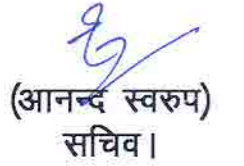 (आनन्द स्वरुप)
सचिव।